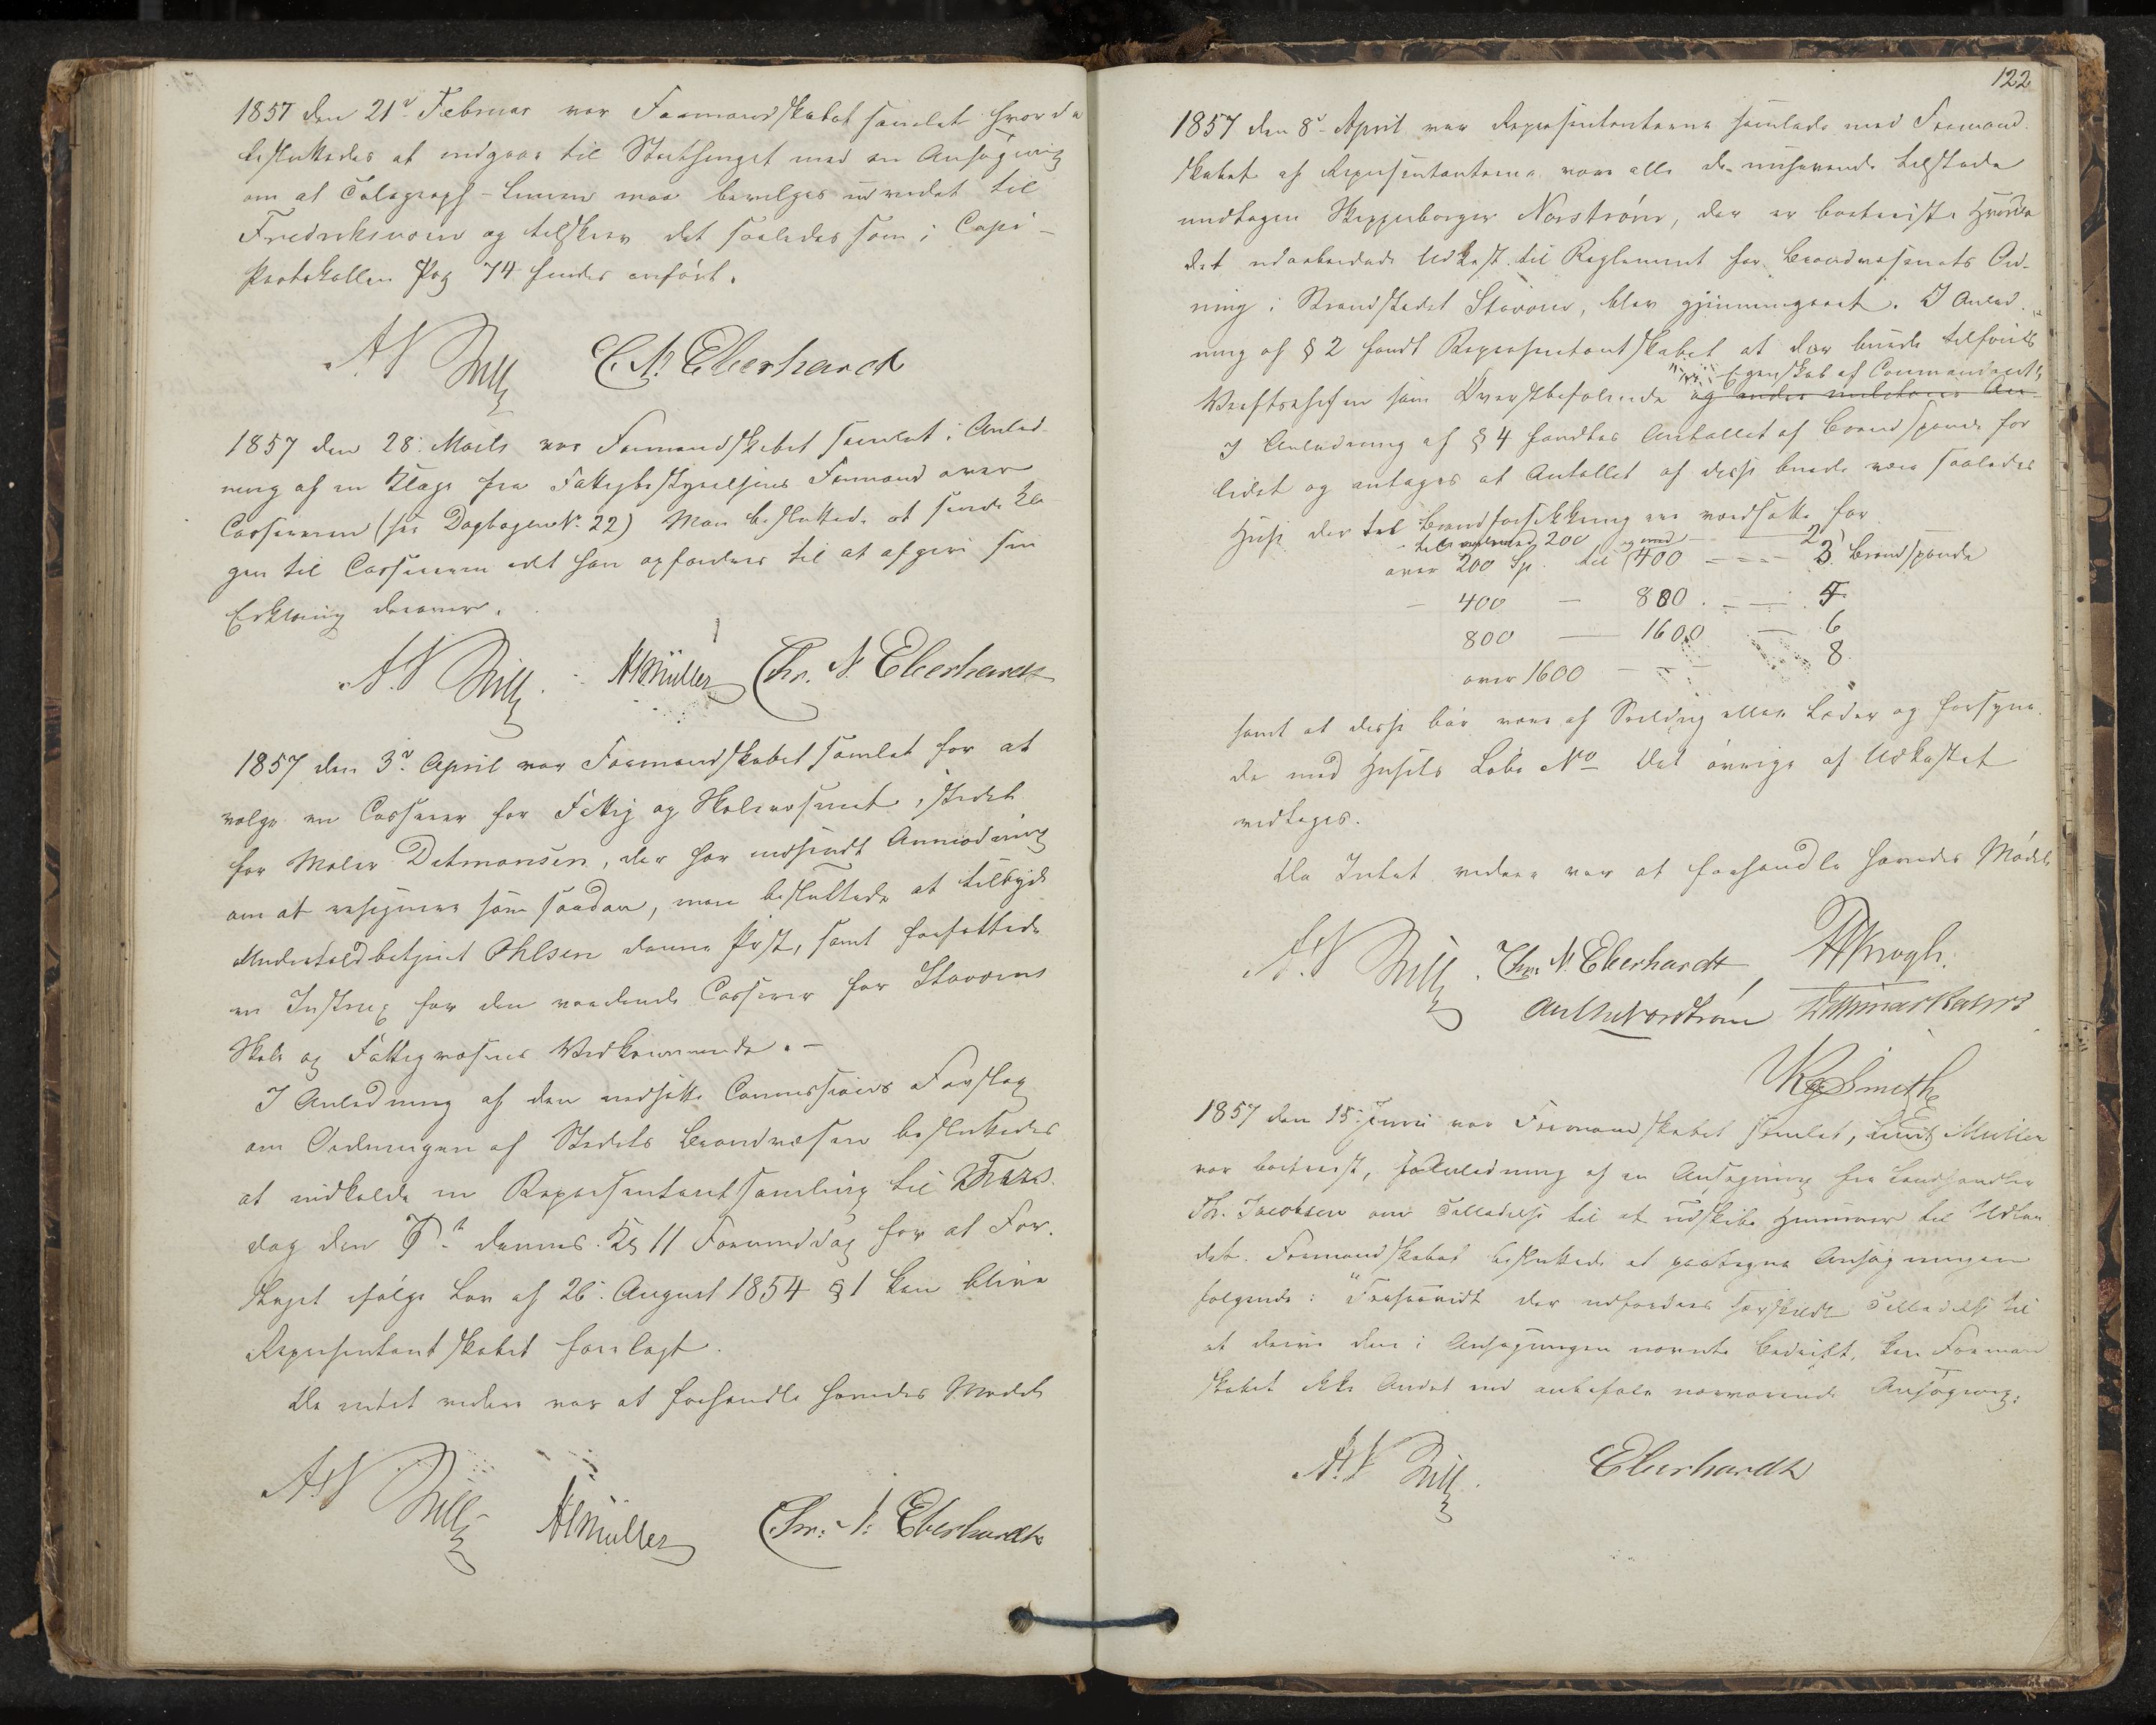 1857 den 21de Februar var Formandskabet samlet hvor da
besluttedes at indgaae til Storthinget med en Ansøgning
om at Telegraph-Linien maa bevilges udvidet til
Fredriksværn og tilskrev det saaledes som i Copi-
Protokollen Pag 74 findes anført.
C. N. Eberhardt
1857 den 28. Marts var Formandskabet samlet i Anled-
ning af en Klage fra Fattigbestyrelsens Formand over
Cassereren (see Dagbogen No. 22) Man besluttede at sende Kla
gen til Cassereren idet han opfordres til at afgive sin
Erklæring derover.
Müller Chr. N. Eberhardt
1857 den 3de April var Formandskabet samlet for at
vælge en Casserer for Fattig og Skolevæsenet, istedet
for Maler Detmansen, der har indsendt Anmodning
om at resignere som saadan, man besluttede at tilbyde
Undertoldbetjent Ohlsen denne Post, samt forfattede
en Instrux for den vordende Casserer for Staværns
Skole og Fattigvæsens Vedkommende. -
I Anledning af den nedsatte Commissions Forslag
om Ordningen af Stedets Brandvæsen besluttedes
at indkalde en Repræsentantsamling til
dag den dennes Kl 11 Formiddag for at For-
slaget ifølge Lov af 26. August 1854 § 1 kan blive
Repræsentantskabet forelagt.
Da intet videre var at forhandle hævedes Mødet
Müller Chr. N. Eberhardt
122
1857 den 8de April var Repræsentanterne samlede med Formand-
skabet af Repræsentanterne vare alle de nuværende tilstede
undtagen Skipperborger Norstrøm, der er bortreist. Hvorda
det udarbeidede Udkast til Reglement for Brandvæsenets Ord-
ning i Strandstedet Staværn, blev gjennemgaaet. I Anled-
ning af § 2 fandt Repræsentantskabet at der burde tilføies
Egenskab af Commandant
Værftschefen som Øverstbefalende og anden militair
I Anledning af § 4 fandtes Antallet af Brandspande for
lidet og antages at Antallet af disse burde være saaledes
Huse der til Brandforsikkring ere værdsatte for
til og med 200 2
over 200 Sp. til og med 400 - - - 3 Brandspande
- 400 - 800 - 5
800 - 1600 - 6
over 1600 - - 8
samt at disse bør være af Seildug eller Læder og forsyne-
de med Husets Løbe No Det øvrige af Udkastet
vedtages.
Da Intet videre var at forhandle hævedes Mødet
Chr. N. Eberhardt Krogh.
Smith
1857 den 15. Juni var Formandskabet samlet, Lieut Müller
var bortreist, i Anledning af en Ansøgning fra Landhandler
Th. Jacobsen om Tilladelse til at udskibe Hummer til Udlan
det. Formandskabet besluttede at paategne Ansøgningen
følgende: "Forsaavidt der udfordres særskildt Tilladelse til
at drive den i Ansøgningen nævnte Bedrift, kan Formand
skabet ikke Andet end anbefale nærværende Ansøgning.
Eberhardt